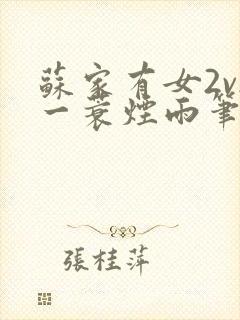 蘇家有女2v
一蓑煙雨筆
張桂萍